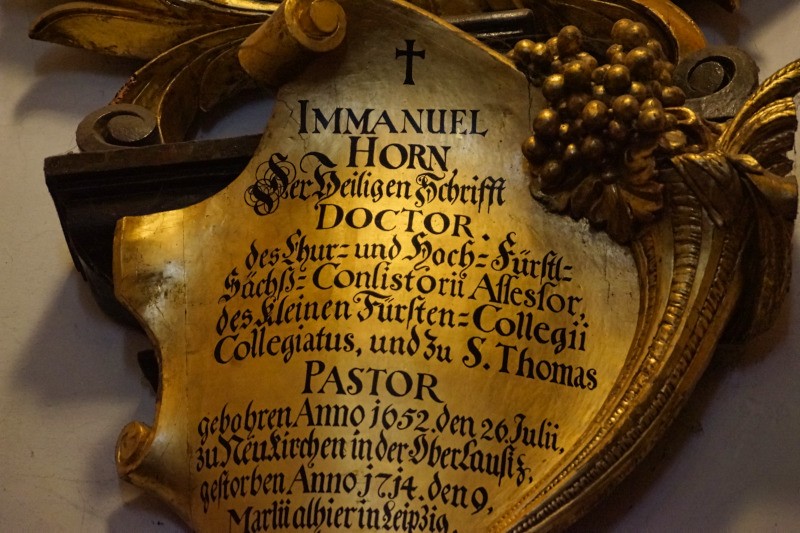 IMMANUEL
HORN
Der Heiligen Schrifft
DOCTOR.
des Chur= und Hoch=Fürstl=
Sächß= Consistorii Assessor,
des Kleinen Fürsten=Collegii
Collegiatus, und zu S. Thomas
PASTOR
gebohren Anno 1652. den 26. Julii,
zu Neukirchen in der Ober Lausitz,
gestorben Anno 1714. den 9.
Martii alhier in Leipzig.